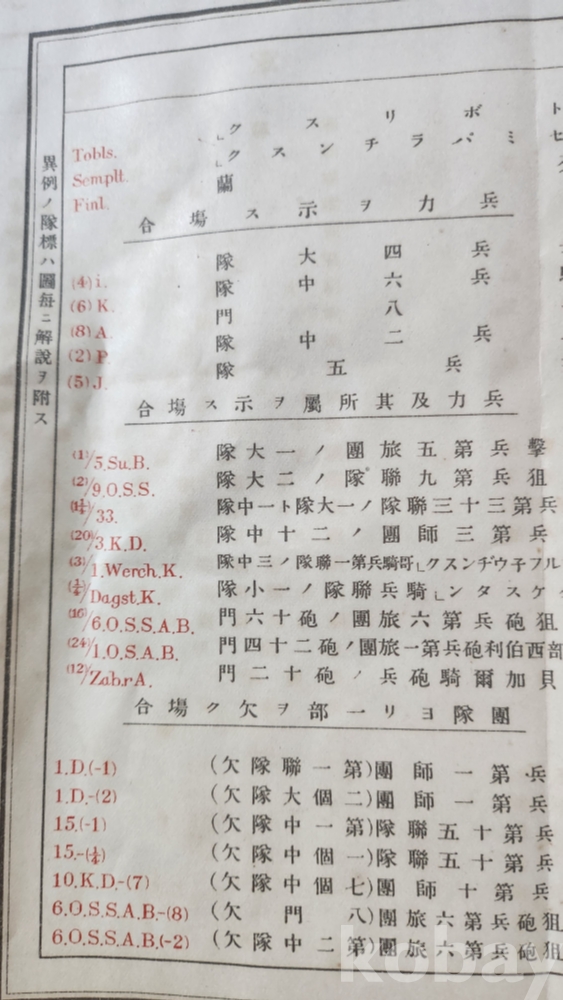 異例ノ隊標ハ圖毎ニ解說ヲ附ス
Tobls. トボリスク」
Semplt. セミパラチンスク」
Finl. 蘭
兵力ヲ示ス場合
(4)i. 兵四大隊
(6)K. 兵六中隊
(8)A. 八門
(2)P. 兵二中隊
(5)J. 兵五隊
兵力及其所屬ヲ示ス場合
(1)/5.Su.B. 擊兵第五旅團ノ一大隊
(2)/9.O.S.S. 狙兵第九聯隊ノ二大隊
(1¼)/33. 兵第三十三聯隊ノ一大隊ト一中隊
(20)/3.K.D. 兵第三師團ノ二十中隊
(3)/1.Werch.K. フル子ウヂンスク」哥騎兵第一聯隊ノ三中隊
(¼)/Dagst.K. ゲスタン」騎兵聯隊ノ一小隊
(16)/6.O.S.S.A.B. 狙砲兵第六旅團ノ砲十六門
(24)/1.O.S.A.B. 部西伯利砲兵第一旅團ノ砲二十四門
(12)/Zab.rA. 貝加爾騎砲兵ノ砲十二門
團隊ヨリ一部ヲ欠ク場合
1.D.(-1) 兵第一師團(第一聯隊欠)
1.D.-(2) 兵第一師團(二個大隊欠)
15.(-1) 兵第十五聯隊(第一中隊欠)
15.-(¼) 兵第十五聯隊(一個中隊欠)
10.K.D.-(7) 兵第十師團(七個中隊欠)
6.O.S.S.A.B.-(8) 狙砲兵第六旅團(八門欠)
6.O.S.S.A.B.(-2) 狙砲兵第六旅團(第二中隊欠)